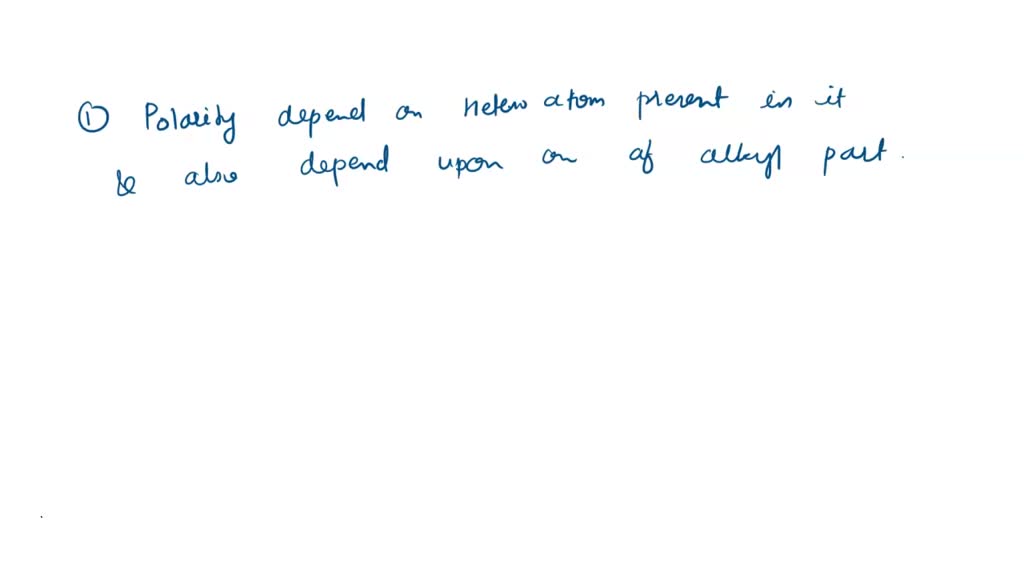 ① Polarity depend on Hetero atom present in it
& also depend upon on of alkyl part.